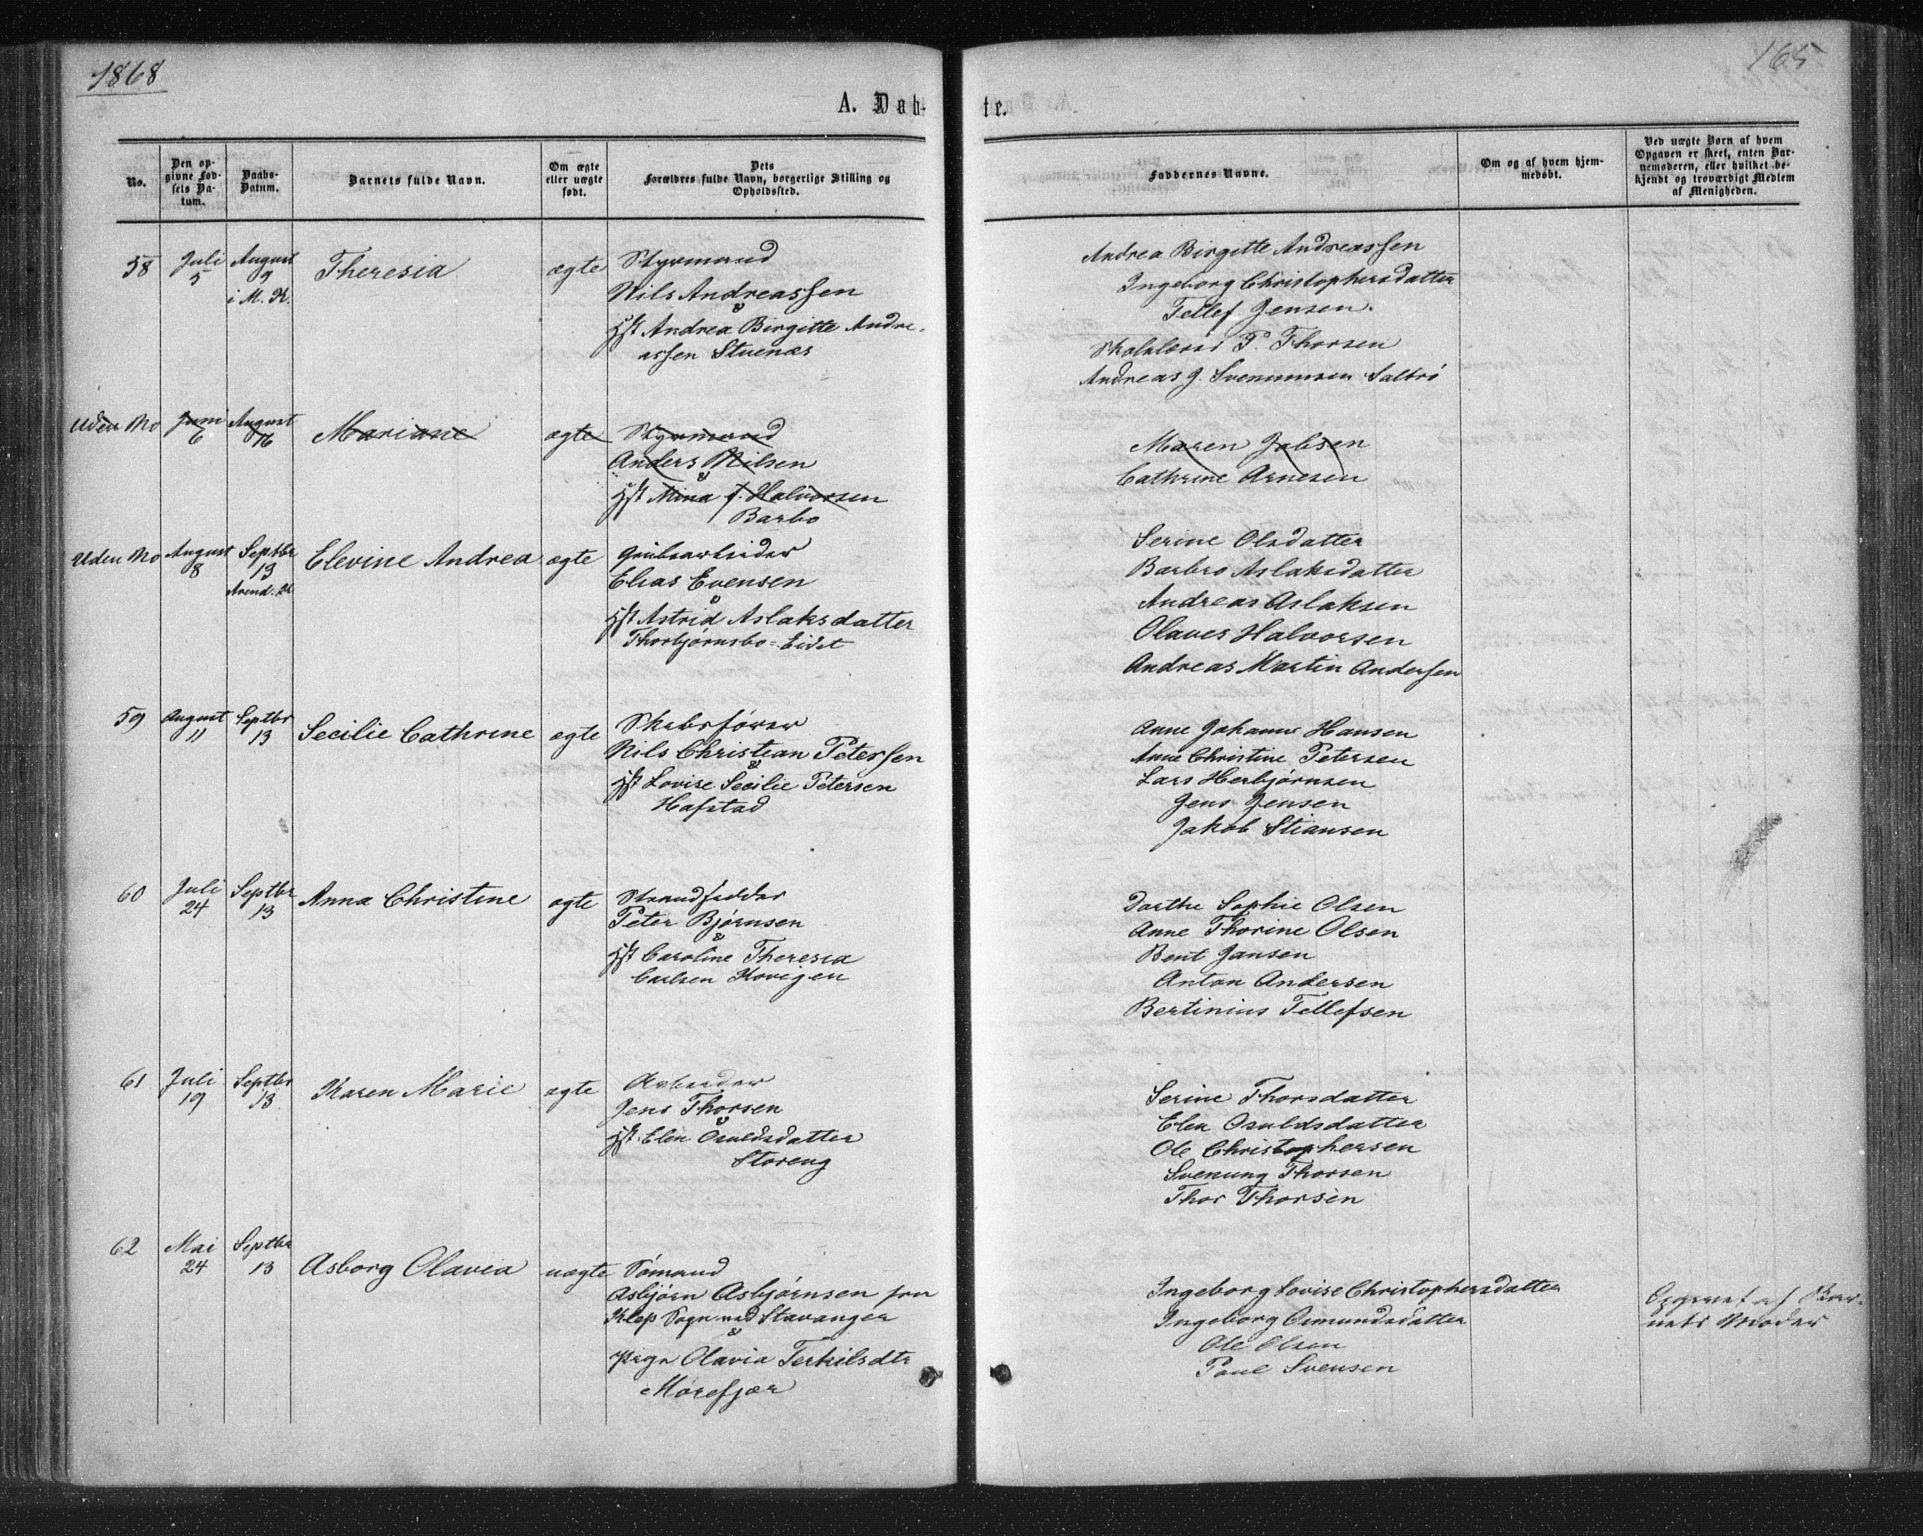 1868
165
A. Døb-
te.
No.
Den op-
givne Fød-
sels Da-
tum.
Daabs-
Datum.
Barnets fulde Navn.
Om ægte
eller uægte
født.
Dets
Forældres fulde Navn, borgerlige Stilling og
Opholdssted.
Faddernes Navne.
Om og af hvem hjem-
medøbt.
Ved uægte Børn af hvem
Opgaven er skeet, enten Bar-
nemoderen, eller hvilket be-
kjendt og troværdigt Medlem
af Menigheden.
58
Juli
5
August
9
i M. K.
Theresia
ægte
Styrmand
Nils Andreassen
&
Hst Andrea Birgitte Andre-
assen Stuenæs
Andrea Birgitte Andreassen
Ingeborg Christophersdatter
Tellef Jensen.
Skolelærer P. Thorsen
Andreas J. Svenumsen Saltrø
Uden No
Juni
6
August
16
Mariane
ægte
Styrmand
Anders Nilsen
&
Hst Mina J. Halvorsen
Barbo
Maren Jobsen
Cathrine Arnesen
Uden No
August
8
Septbr
13
Arend. K
Elevine Andrea
ægte
Grubearbeider
Elias Evensen
&
Hst Astrid Aslaksdatter
Thorbjørnsbo-Eidet
Serine Olsdatter
Barbro Aslaksdatter
Andreas Aslaksen
Olaves Halvorsen
Andreas Martin Andersen
59
August
11
Septbr
13
Secilie Cathrine
ægte
Skibsfører
Nils Christian Petersen
&
Hst Lovise Secilie Petersen
Hafstad
Anne Johanne Hansen
Anne Christine Petersen
Lars Herbjørnsen
Jens Jensen
Jakob Stiansen
60
Juli
24
Septbr
13
Anna Christine
ægte
Strandsidder
Peter Bjørnsen
&
Hst Caroline Theresia
Carlsen Kovigen
Dorthe Sophie Olsen
Anne Thorine Olsen
Bent Jansen
Anton Andersen
Bertinius Tellefsen
61
Juli
19
Septbr
13
Karen Marie
ægte
Arbeider
Jens Thorsen
&
Hst Elen Osuldsdatter
Storeng
Serine Thorsdatter
Elen Osuldsdatter
Ole Christophersen
Svenung Thorsen
Thor Thorsen
62
Mai
24
Septbr
13
Asborg Olavia
uægte
Sømand
Asbjørn Asbjørnsen fra
Klep Sogn ved Stavanger
&
Pige Olavia Terkilsdtr
Mørefjær
Ingeborg Lovise Christophersdatter
Ingeborg Osmundsdatter
Ole Olsen
Poul Svensen
Opgivet af Bar-
nets Moder